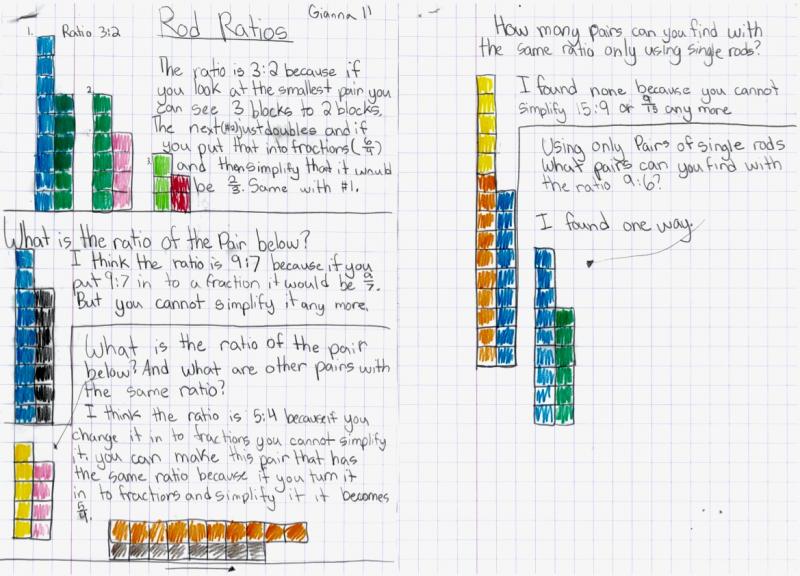 Gianna 11
Rod Ratios
1. Ratio 3:2
The ratio is 3:2 because if
you look at the smallest pair you
can see 3 blocks to 2 blocks.
The next(#2)just doubles and if
you put that into fractions(6/4)
and then simplify that it would
be 2/3. Same with #1.
2.
3.
What is the ratio of the Pair below?
I think the ratio is 9:7 because if you
put 9:7 in to a fraction it would be 9/7.
But you cannot simplify it any more.
What is the ratio of the pair
below? And what are other pairs with
the same ratio?
I think the ratio is 5:4 because if you
change it in to fractions you cannot simplify
it. you can make this pair that has
the same ratio because if you turn it
in to fractions and simplify it it becomes
5/4.
How many pairs can you find with
the same ratio only using single rods?
I found none because you cannot
simplify 15:9 or 9/15 any more
Using only Pairs of single rods
What pairs can you find with
the ratio 9:6?
I found one way.